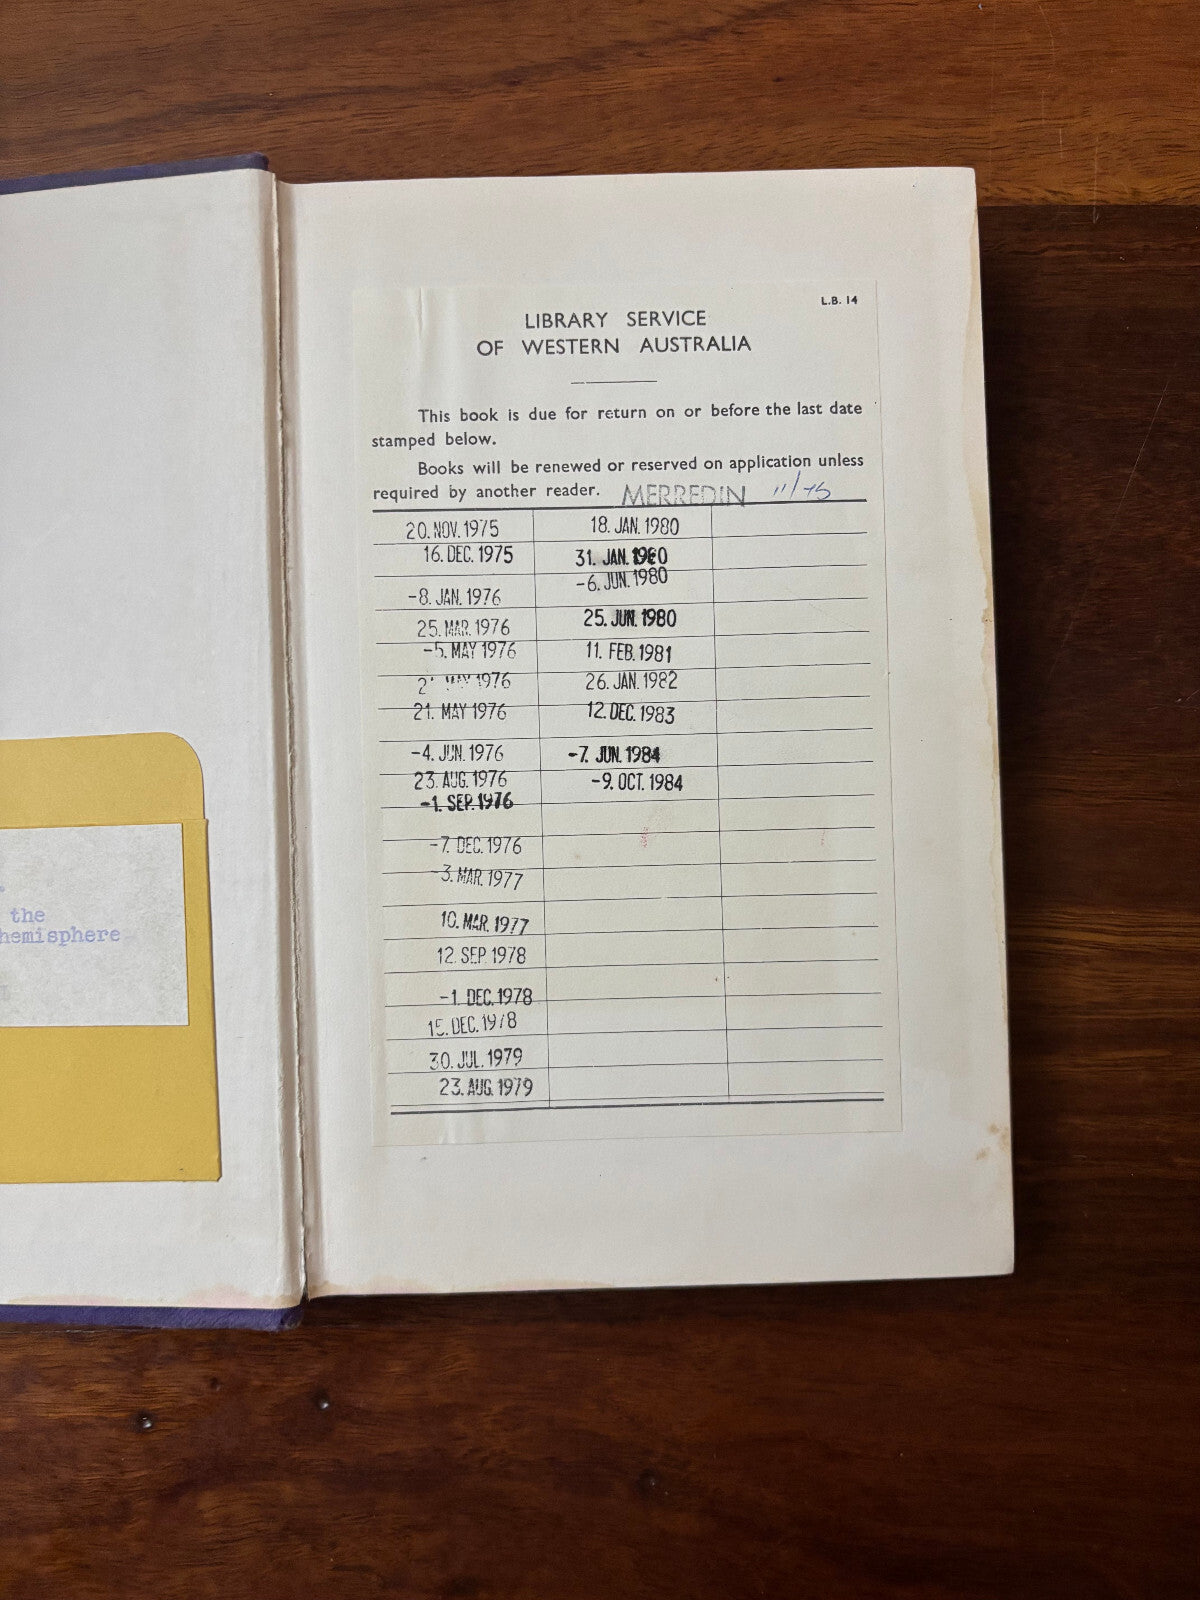 the
hemisphere
L.B. 14
LIBRARY SERVICE
OF WESTERN AUSTRALIA
This book is due for return on or before the last date
stamped below.
Books will be renewed or reserved on application unless
required by another reader. MERREDIN 11/75
20. NOV. 1975
16. DEC. 1975
-8. JAN. 1976
25. MAR. 1976
-5. MAY 1976
MAY 1976
21. MAY 1976
-4. JUN. 1976
23. AUG. 1976
-1. SEP. 1976
-7. DEC. 1976
-3. MAR. 1977
10. MAR. 1977
12. SEP. 1978
-1. DEC. 1978
15. DEC. 1978
30. JUL. 1979
23. AUG. 1979
18. JAN. 1980
31. JAN. 1980
-6. JUN. 1980
25. JUN. 1980
11. FEB. 1981
26. JAN. 1982
12. DEC. 1983
-7. JUN. 1984
-9. OCT. 1984